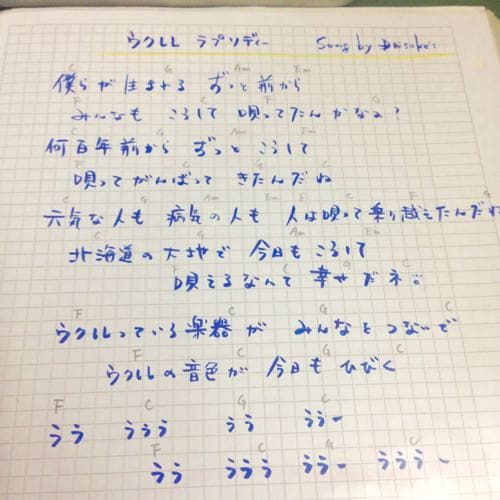 ウクレレ ラプソディー Song by Daisuke
C G Am Em
僕らが生まれる ずっと前から
F C F G
みんなも こうして 唄ってたんかなぁ?
C G Am Em
何百年前から ずっと こうして
F C G C
唄ってがんばって きたんだね
C G Am Em F C F G
元気な人も 病気の人も 人は唄って乗り越えたんだね
C G Am Em
北海道の大地で 今日もこうして
F C G C
唄えるなんて幸せだネ。
F C G C
ウクレレっている楽器が みんなをつないで
F C G C
ウクレレの音色が 今日も ひびく
F C G C
うう ううう うう ううー
F C G C
うう ううう ううー うううー